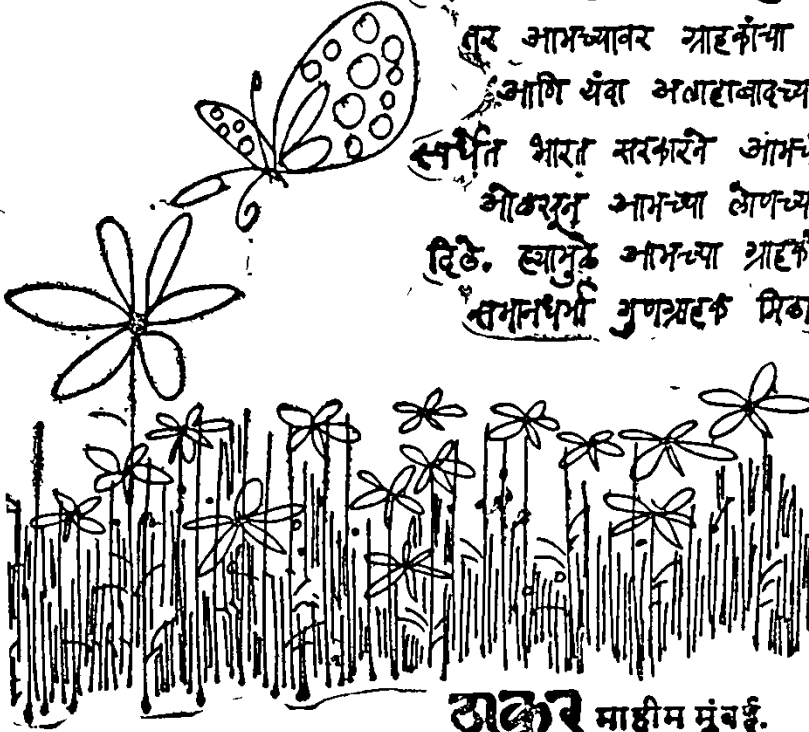 तर आमच्यावर ग्राहकांचा
आणि यंदा अलाहाबादच्य
स्पर्धेत भारत सरकारने आमच
ओळखून आमच्या लोणच्य
दिले. ह्यामुळे आमच्या ग्राहकां
समानधर्मा गुणग्राहक मिळा
ठाकूर माहीम मुंबई.